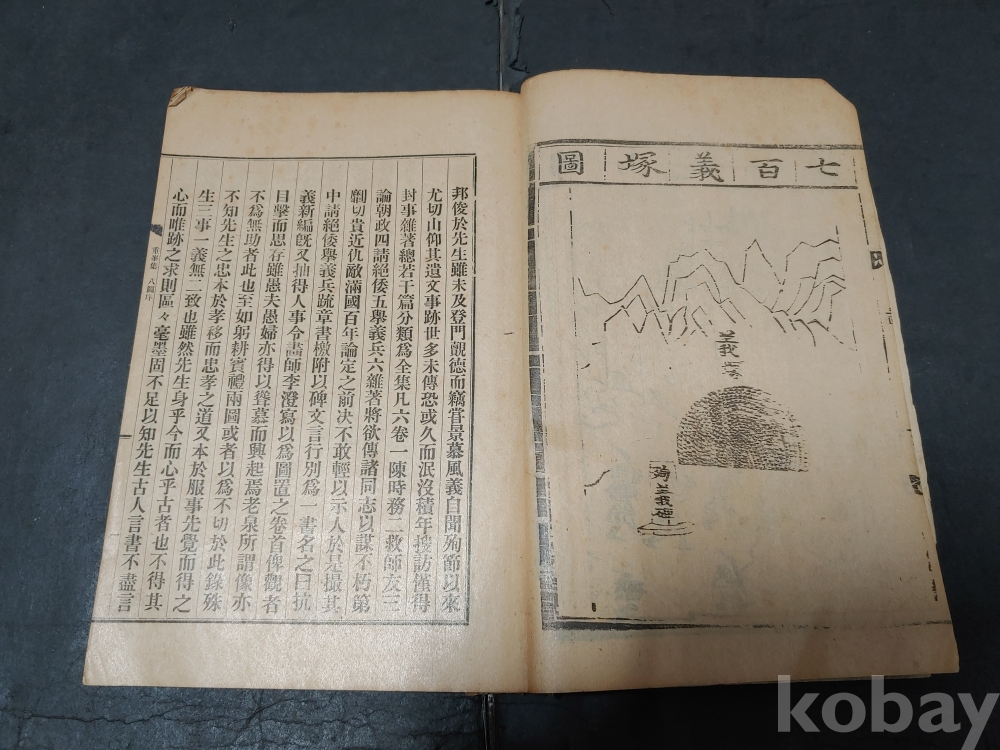 七百義塚圖
義塚
殉義碑
邦俊於先生雖未及登門覿德而竊甞景慕風義自聞殉節以來
尤切山仰其遺文事跡世多未傳恐或久而泯沒積年搜訪僅得
封事雜著總若干篇分類爲全集凡六卷一陳時務二救師友三
論朝政四請絕倭五舉義兵六雜著將欲傳諸同志以謀不朽第
剴切貴近仇敵滿國百年論定之前决不敢輕以示人於是撮其
中請絕倭舉義兵疏章書檄附以碑文言行別爲一書名之曰抗
義新編旣又抽得人事令畵師李澄寫以爲圖置之卷首俾觀者
目擊而思存雖愚夫愚婦亦得以聳慕而興起焉老泉所謂像亦
不爲無助者此也至如躬耕賓禮兩圖或者以爲不切於此錄殊
不知先生之忠本於孝移而忠孝之道又本於服事先覺而得之
生三事一義無二致也雖然先生身乎今而心乎古者也不得其
心而唯跡之求則區々毫墨固不足以知先生古人言書不盡言
重峯集 八圖序
kobay